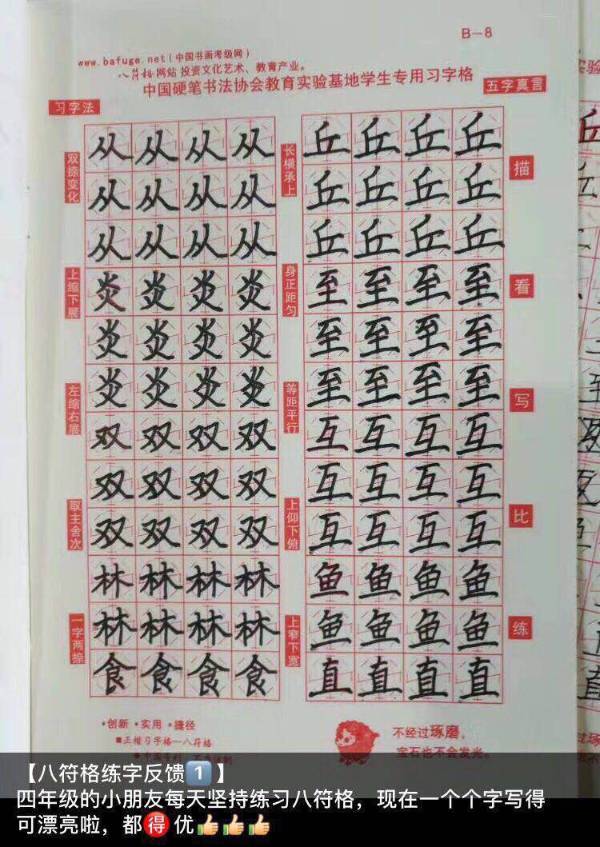 B-8
www.bafuge.net(中国书画考级网)
八符格网站 投资文化艺术、教育产业。
中国硬笔书法协会教育实验基地学生专用习字格
五字真言
习字法
双捺变化
上缩下展
左缩右展
取主舍次
一字两捺
从从从从
从从从从
从从从从
炎炎炎炎
炎炎炎炎
炎炎炎炎
双双双双
双双双双
双双双双
林林林林
林林林林
食食食食
长横承上
身正距匀
等距平行
上仰下俯
上窄下宽
丘丘丘丘
丘丘丘丘
丘丘丘丘
至至至至
至至至至
至至至至
互互互互
互互互互
互互互互
鱼鱼鱼鱼
鱼鱼鱼鱼
直直直直
描
看
写
比
练
·创新 ·实用 ·捷径
■正楷习字格—八符格
不经过琢磨，
宝石也不会发光。
【八符格练字反馈1️⃣】
四年级的小朋友每天坚持练习八符格，现在一个个字写得
可漂亮啦，都🉐优👍👍👍